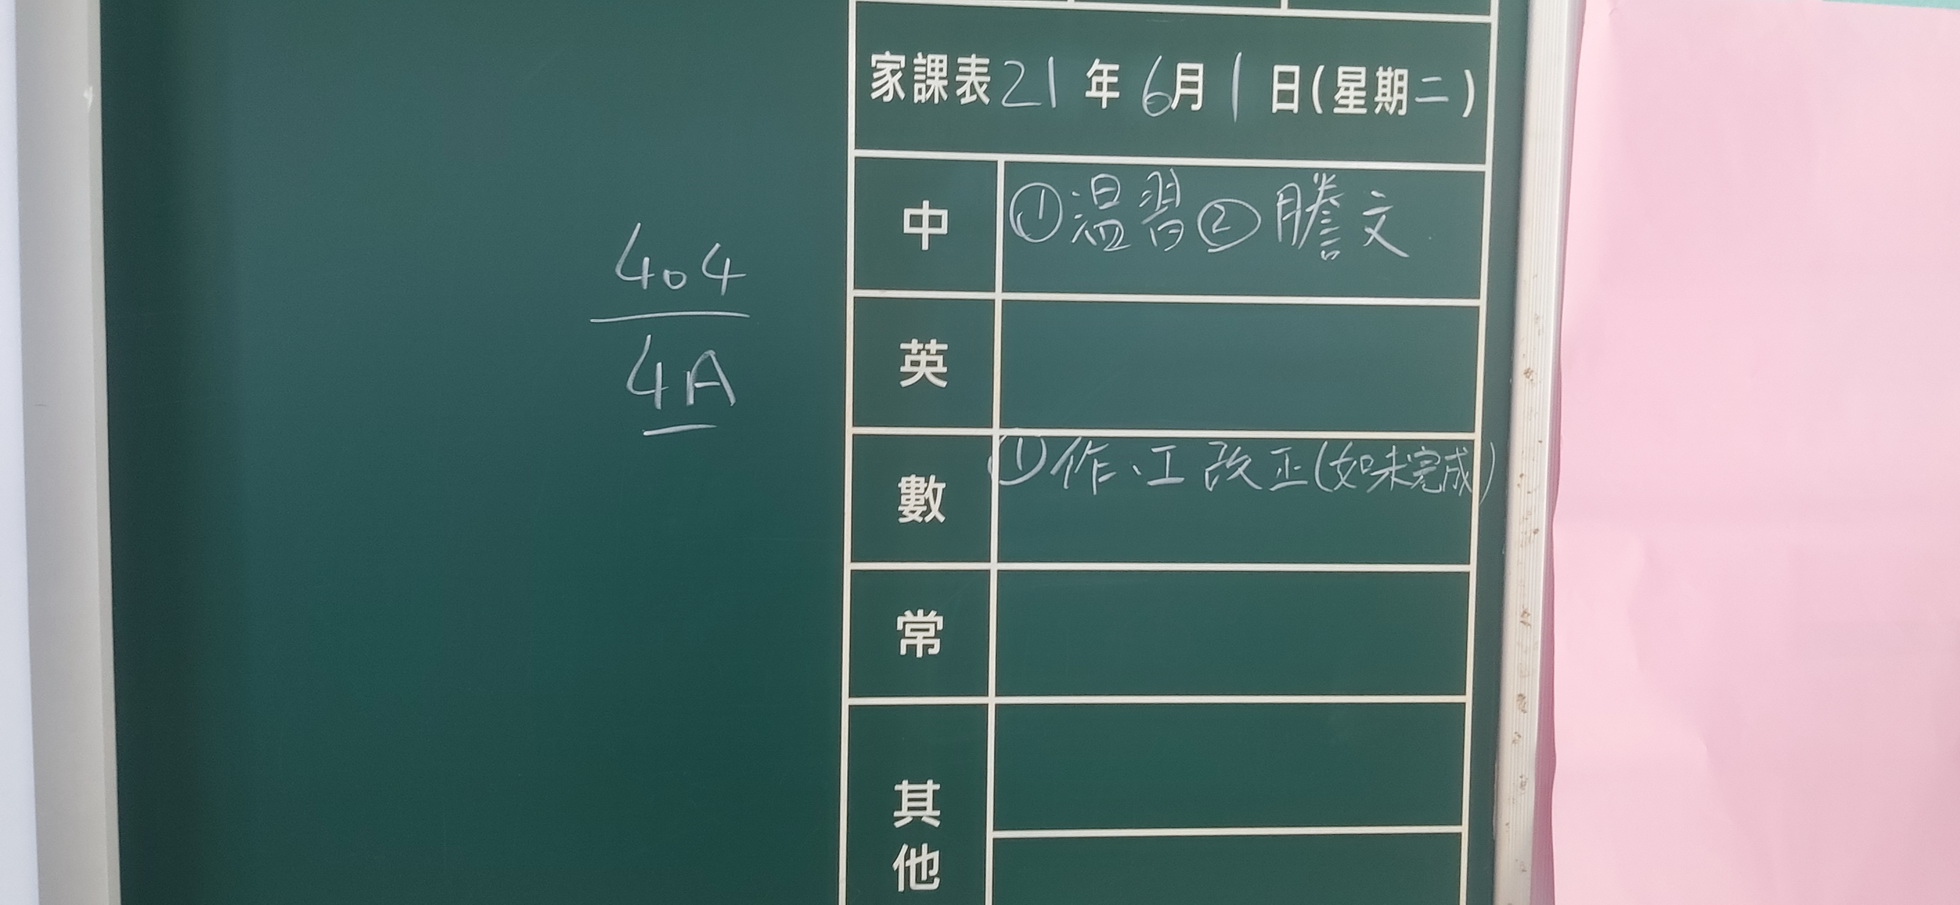 家課表21年6月1日(星期二)
中 ①温習②謄文
英
數 ①作、工改正(如未完成)
常
其他
404
4A